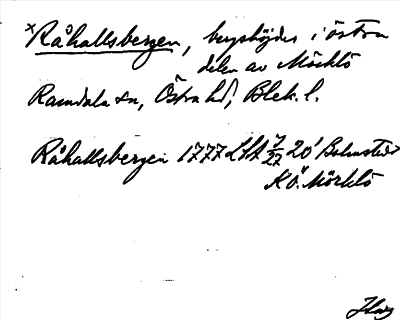 × Råhallsbergen, bergshöjder i östra
delen av Möcklö
Ramdala sn, Östra hd, Blek. l.
Råhallsbergen 1777 LSA 7/27 20' Bolmstedt
KÖ. Möcklö